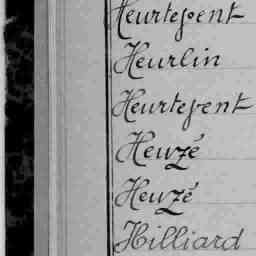 Heurtepent
Heurlin
Heurtevent
Heuzé
Heuzé
Hilliard